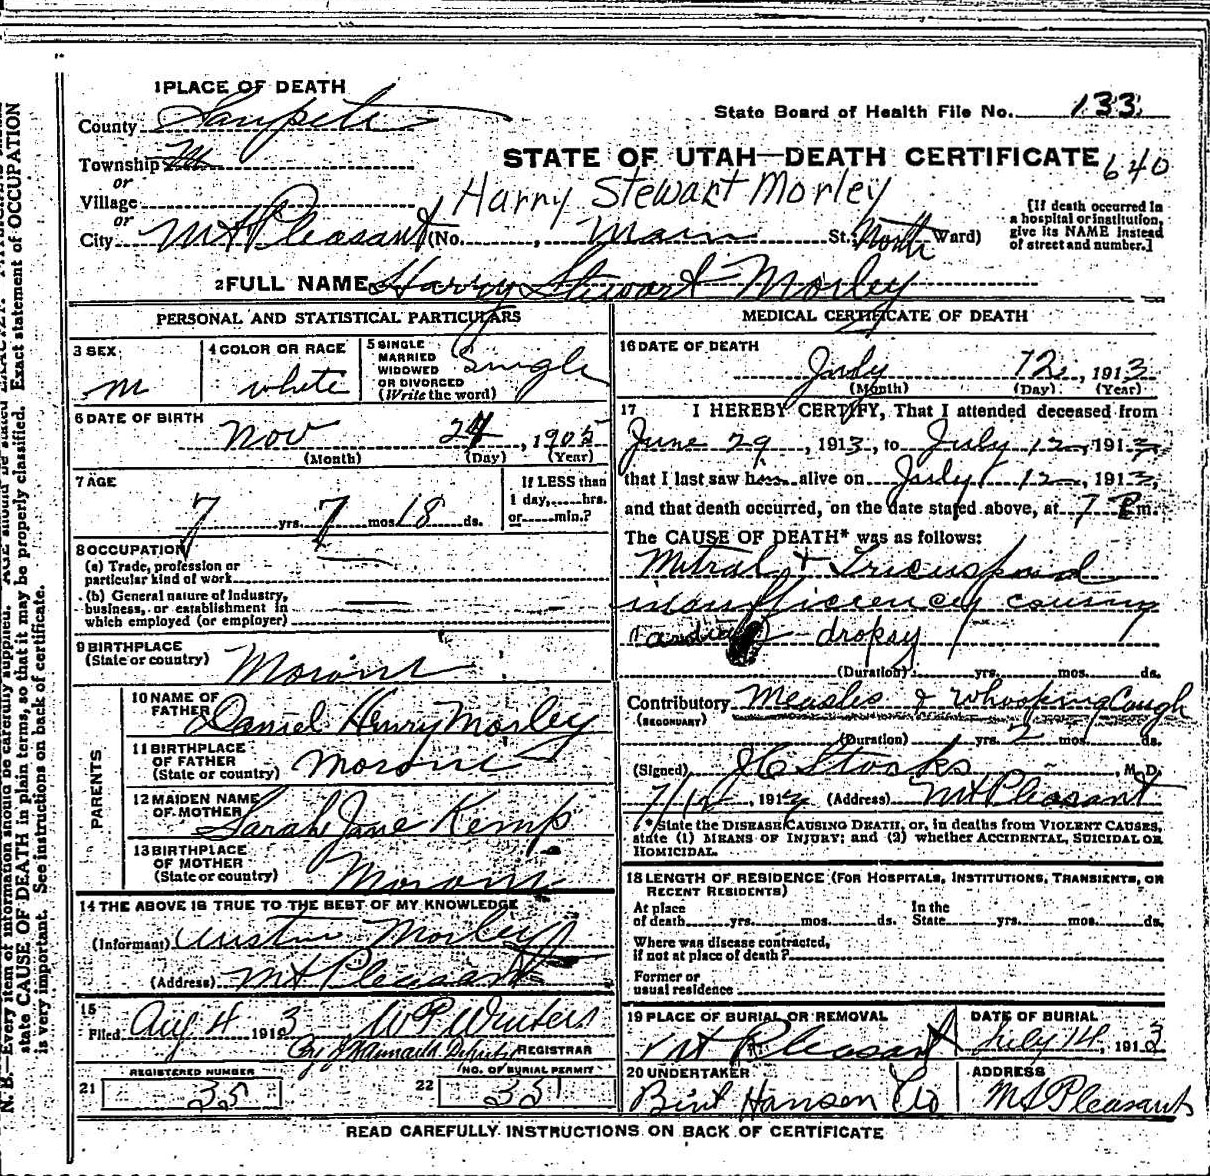 1 PLACE OF DEATH
County Sanpete
State Board of Health File No. 133
Township
or
STATE OF UTAH—DEATH CERTIFICATE 640
Village
Harry Stewart Morley
or
City Mt Pleasant (No. , Main St. North Ward)
[If death occurred in
a hospital or institution,
give its NAME instead
of street and number.]
2 FULL NAME Harry Stewart Morley
PERSONAL AND STATISTICAL PARTICULARS
3 SEX
m
4 COLOR OR RACE
white
5 SINGLE
MARRIED
WIDOWED
OR DIVORCED
(Write the word)
Single
6 DATE OF BIRTH
Nov 24, 1905
(Month) (Day) (Year)
7 AGE
7 yrs. 7 mos. 18 ds.
If LESS than
1 day,......hrs.
or......min.?
8 OCCUPATION
(a) Trade, profession or
particular kind of work
(b) General nature of Industry,
business, or establishment in
which employed (or employer)
9 BIRTHPLACE
(State or country) Moroni
PARENTS
10 NAME OF
FATHER Daniel Henry Morley
11 BIRTHPLACE
OF FATHER
(State or country) Moroni
12 MAIDEN NAME
OF MOTHER Sarah Jane Kemp
13 BIRTHPLACE
OF MOTHER
(State or country) Moroni
14 THE ABOVE IS TRUE TO THE BEST OF MY KNOWLEDGE
(Informant) Austin Morley
(Address) Mt Pleasant
15
Filed Aug 4 1913 WP Winters
REGISTRAR
REGISTERED NUMBER
21 35
NO. OF BURIAL PERMIT
22 35
MEDICAL CERTIFICATE OF DEATH
16 DATE OF DEATH
July 12, 1913
(Month) (Day) (Year)
17 I HEREBY CERTIFY, That I attended deceased from
June 29, 1913, to July 12, 1913,
that I last saw him alive on July 12, 1913,
and that death occurred, on the date stated above, at 7 P m.
The CAUSE OF DEATH* was as follows:
Mitral & Tricuspid
insufficiency causing
Cardiac dropsy
(Duration) yrs. mos. ds.
Contributory Measles & Whooping Cough
(SECONDARY)
(Duration) yrs. 2 mos. ds.
(Signed) , M. D.
7/12, 1913 (Address) Mt Pleasant
* State the DISEASE CAUSING DEATH, or, in deaths from VIOLENT CAUSES,
state (1) MEANS OF INJURY; and (2) whether ACCIDENTAL, SUICIDAL OR
HOMICIDAL.
18 LENGTH OF RESIDENCE (FOR HOSPITALS, INSTITUTIONS, TRANSIENTS, OR
RECENT RESIDENTS)
At place
of death yrs. mos. ds.
In the
State yrs. mos. ds.
Where was disease contracted,
if not at place of death?
Former or
usual residence
19 PLACE OF BURIAL OR REMOVAL
Mt Pleasant
DATE OF BURIAL
July 14, 1913
20 UNDERTAKER
Hansen Co
ADDRESS
Mt Pleasant
READ CAREFULLY INSTRUCTIONS ON BACK OF CERTIFICATE
N. B.—Every item of information should be carefully supplied. AGE should be stated EXACTLY.
state CAUSE OF DEATH in plain terms, so that it may be properly classified. Exact statement of OCCUPATION
is very important. See instructions on back of certificate.